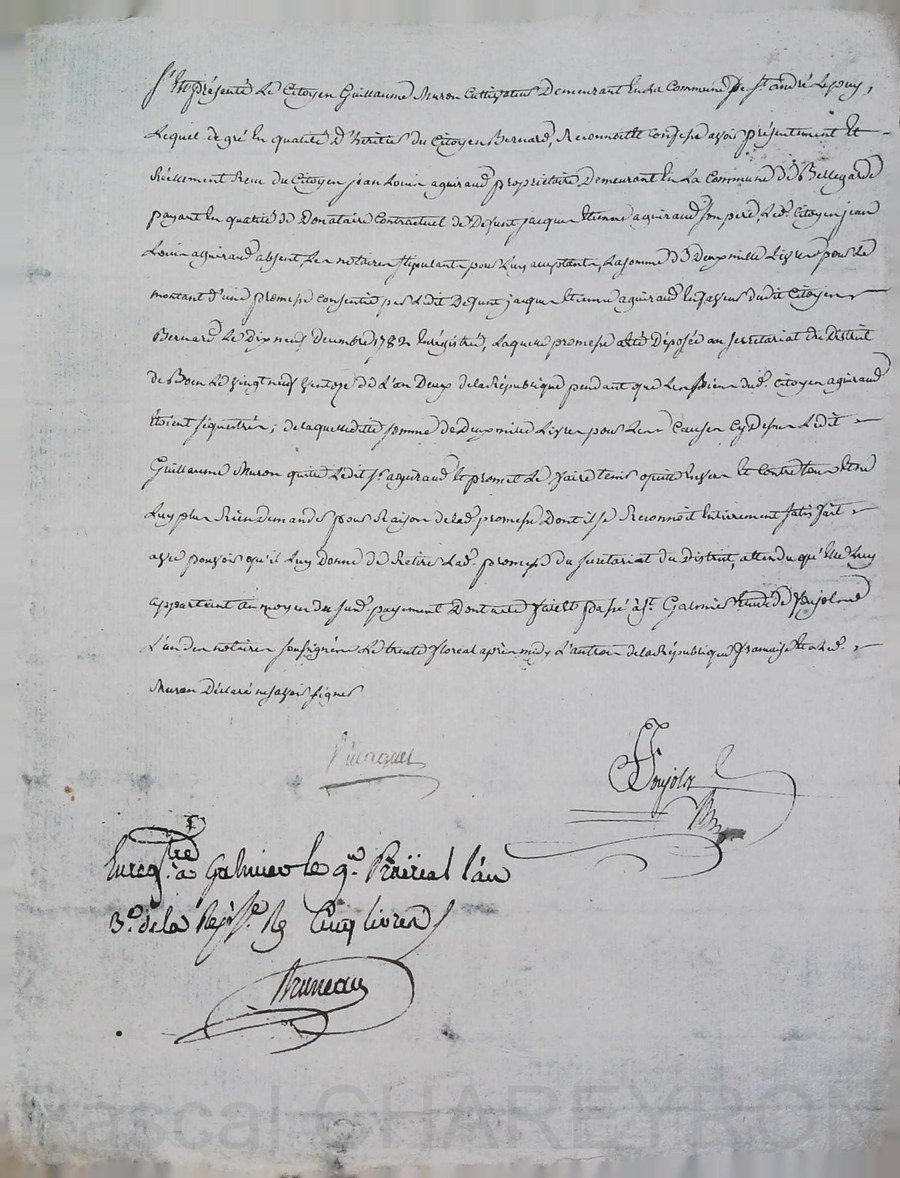 S'est présenté le Citoyen Guillaume Muron Cultivateur Demeurant En la Commune de St. andré Lepuy,
Lequel de gré En qualité d'héritier du Citoyen Bernard, Reconnoit et confesse avoir présentement Et
Réellement Reçu du Citoyen jean Louis aguiraud propriétaire Demeurant En La Commune de Bellegarde
payant En qualité de Donataire Contractuel de Defunt jacques Etienne aguiraud son pere, Led. Citoyen jean
Louis aguiraud absent Les notaires stipulants pour Luy acceptants, La somme de Deux mille Livres pour le
montant d'une promesse consentie par Ledit Defunt jacques Etienne aguiraud En faveur dudit Citoyen
Bernard Le Dix neuf Decembre 1782 Enregistré, Laquelle promesse a été Déposée au secretariat du District
de Boen Le vingt neuf ventose de L'an Deux de la République pendant que Les Biens dud. Citoyen aguiraud
Etoient sequestrés; de laquelle ditte somme de Deux mille Livres pour Les Causes Cy dessus Ledit
Guillaume Muron quitte Ledit sr. aguiraud Et promet Le faire tenir quitte Envers Et Contre tous Et ne
Luy plus Rien Demander pour Raison de lad. promesse Dont il se Reconnoit Entierement satisfait
avec pouvoir qu'il Luy Donne de Retirer Lad. promesse du secretariat du District, attendu qu'Elle Luy
appartient au moyen du susd. payement Dont acte fait Et passé à St. Galmier Etude de Poujolas
L'un des notaires soussignés Le trente floreal après midy L'an trois de la République française Et a Led.
Muron Déclaré ne savoir signer
Poujolas
Enregistré a Galmier le 9e. Prairial l'an
3e. de la Rep. Re. Cinq livres
Bruneau
Pascal CHAREYRON